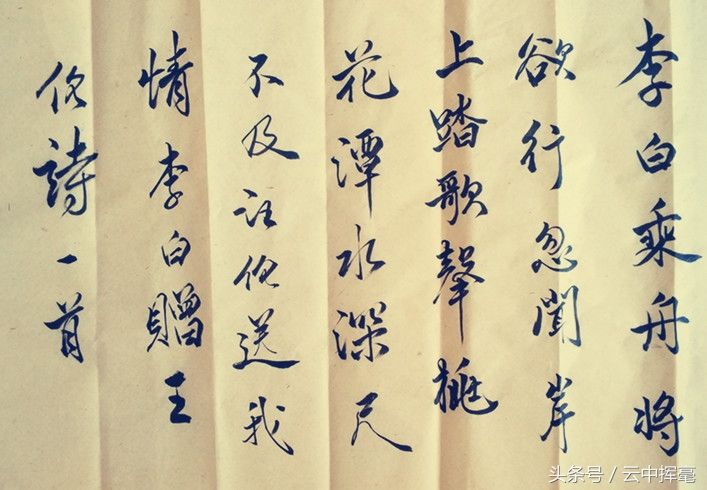 李白乘舟将
欲行忽聞岸
上踏歌聲桃
花潭水深尺
不及汪伦送我
情李白贈王
伦詩一首
头条号 / 云中挥毫